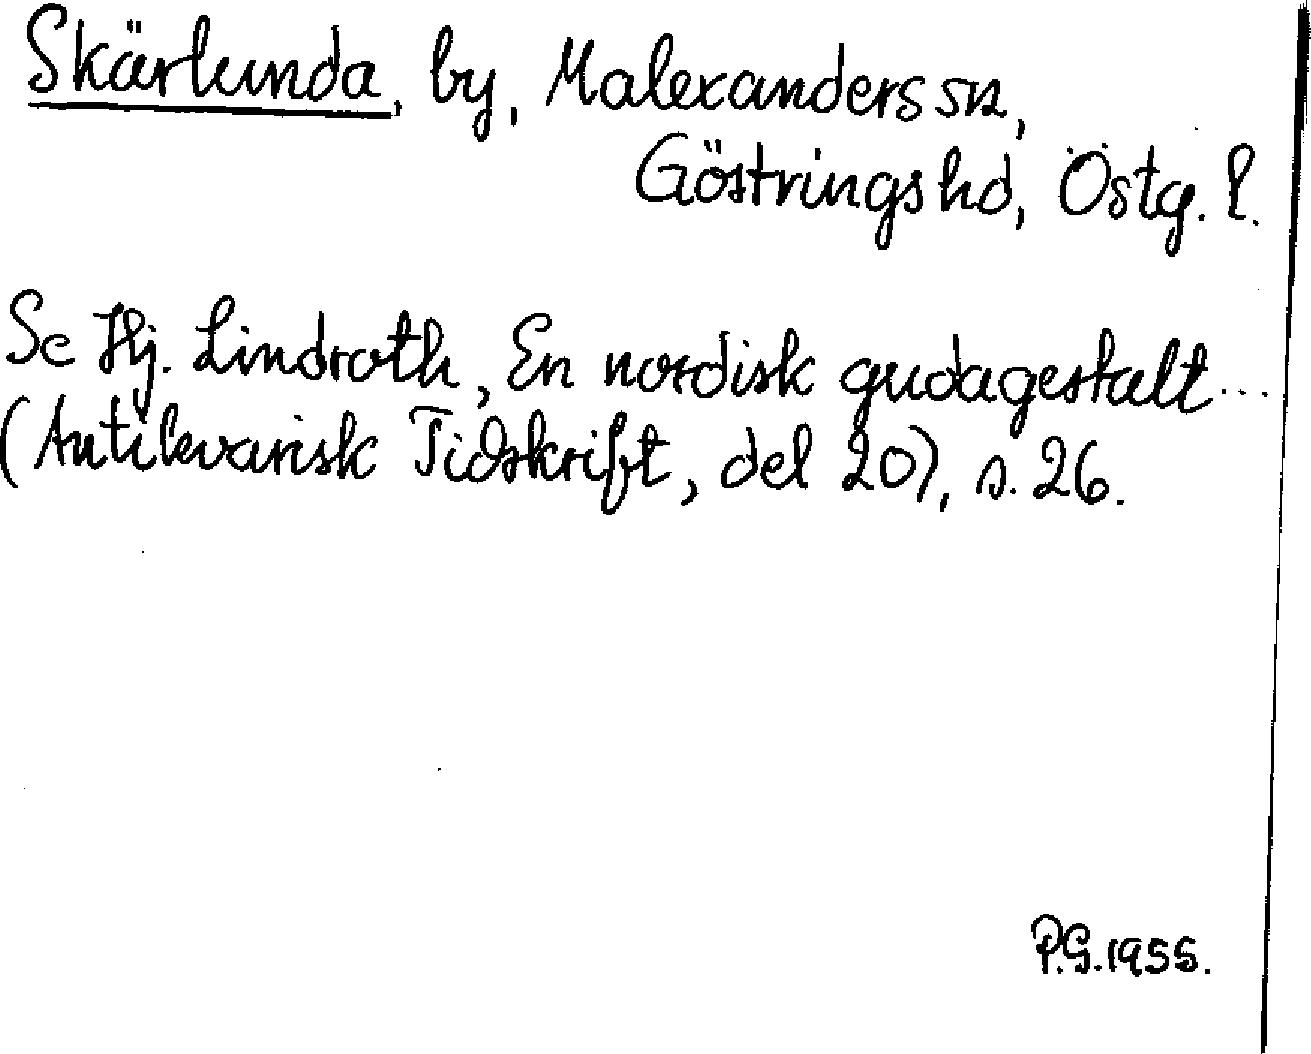 Skärlunda, by, Malexanders sn,
Göstringshd, Östg. l.
Se Hj. Lindroth, En nordisk gudagestalt...
(Antikvarisk Tidskrift, del 20), s. 26.
P.G. 1955.